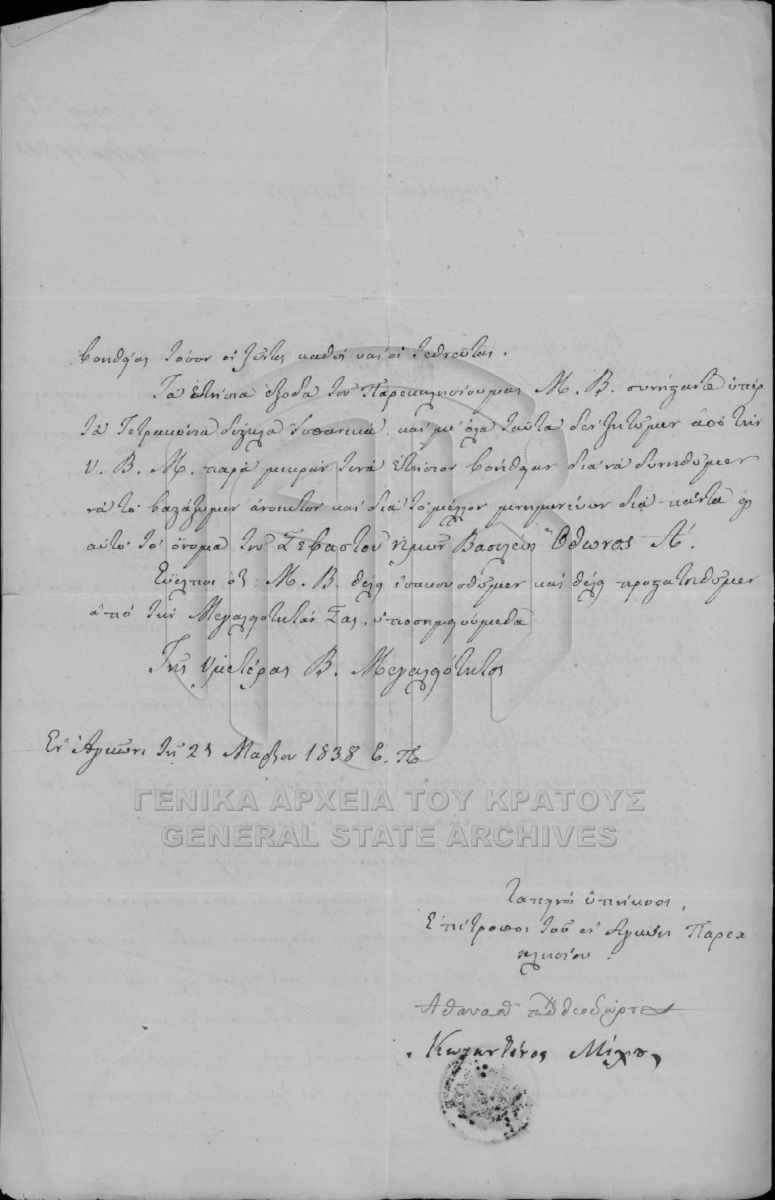 βοηθείας τόσον οἱ ζῶντες καθὼς καὶ οἱ τεθνεῶτες.
Τὰ ἐτήσια ἔξοδα τοῦ Παρεκκλησίου μας Μ. Β. συνήζαντο ὑπὲρ
τὰ Τετρακόσια δίστηλα Ἱσπανικὰ, καὶ μὲ ὅλα ταῦτα δὲν ζητοῦμεν ἀπὸ τὴν
Υ. Β. Μ. παρὰ μικράν τινὰ ἐτήσιον βοήθειαν διὰ νὰ δυνηθῶμεν
νὰ τὸ βαστάξωμεν ἀνοικτὸν καὶ διὰ τὸ μέλλον μνημονεύων διὰ πάντα
αὐτὸ τὸ ὄνομα τοῦ Σεβαστοῦ ἡμῶν Βασιλέως Ὄθωνος Α'.
Εὔελποι ὅτι Μ. Β. θέλει εἰσακουσθῶμεν καὶ θέλει προστατευθῶμεν
ἀπὸ τὴν Μεγαλειότητάν Σας, ὑποσημειούμεθα
Τῆς Ὑμετέρας Β. Μεγαλειότητος
Ἐν Ἀγκῶνι τῇ 21 Μαρτίου 1838 Ε. Π.
ΓΕΝΙΚΑ ΑΡΧΕΙΑ ΤΟΥ ΚΡΑΤΟΥΣ
GENERAL STATE ARCHIVES
Ταπεινοὶ ὑπήκοοι,
Ἐπίτροποι τοῦ ἐν Ἀγκῶνι Παρεκ
κλησίου.
Ἀθανάσιος
Κωσταντῖνος